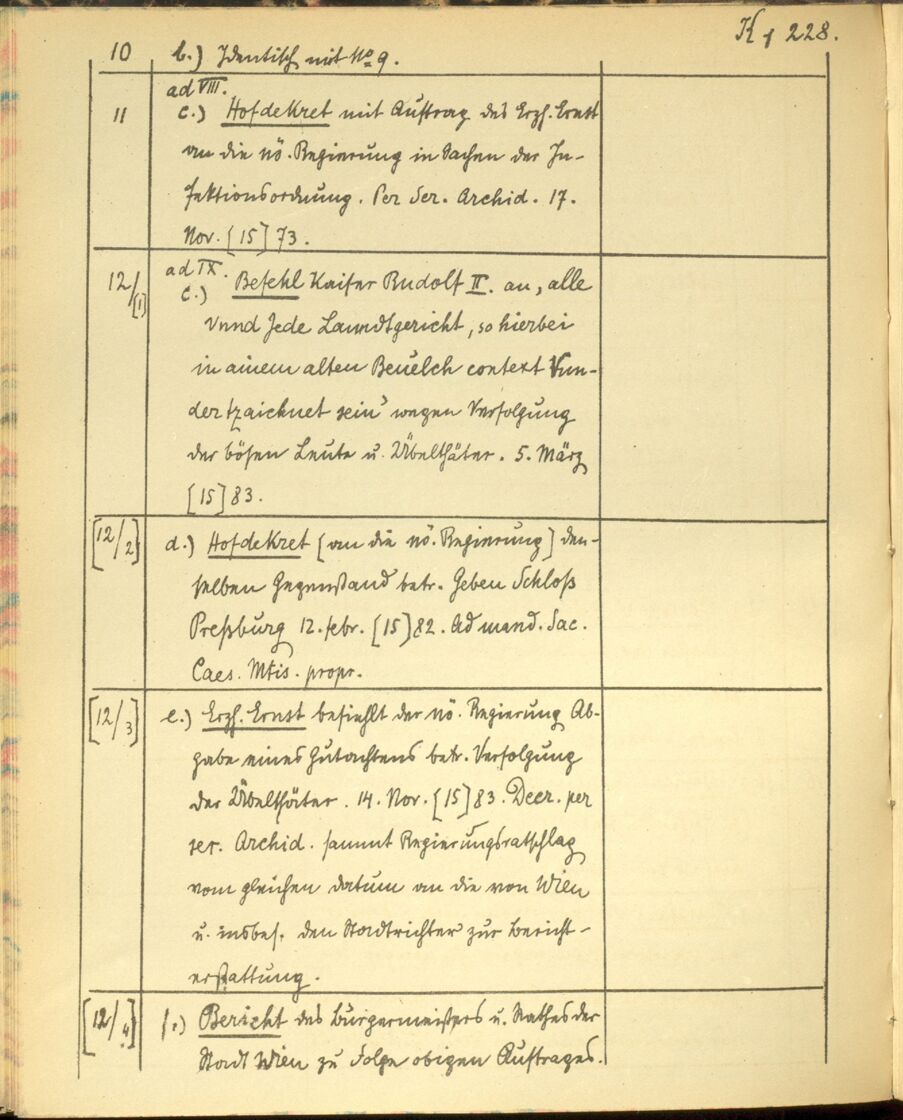 K 1 228.
10 b.) Identisch mit No 9.
ad VIII.
11 c.) Hofdekret mit Auftrag des Erzh. Ernst
an die nö. Regierung in Sachen der In-
fektionsordnung. Per Ser. Archid. 17.
Nov. [15]73.
ad IX.
12/[1] c.) Befehl Kaiser Rudolf II. an „alle
Vnnd Jede Lanndtgericht, so hierbei
in ainem alten Beuelch context Vnn-
dertzaichnet sein" wegen Verfolgung
der bösen Leute u. Übelthäter. 5. März
[15]83.
[12/2] d.) Hofdekret [an die nö. Regierung] den-
selben Gegenstand betr. Geben Schloß
Preßburg 12. febr. [15]82. Ad mand. Sac.
Caes. Mtis. propr.
[12/3] e.) Erzh. Ernst befiehlt der nö. Regierung Ab-
gabe eines Gutachtens betr. Verfolgung
der Übelthäter. 14. Nov. [15]83. Decr. per
ser. Archid. sammt Regierungsratschlag
vom gleichen datum an die von Wien
u. insbes. den Stadtrichter zur Bericht-
erstattung.
[12/4] f.) Bericht des Bürgermeisters u. Rathes der
Stadt Wien zu Folge obigen Auftrages.